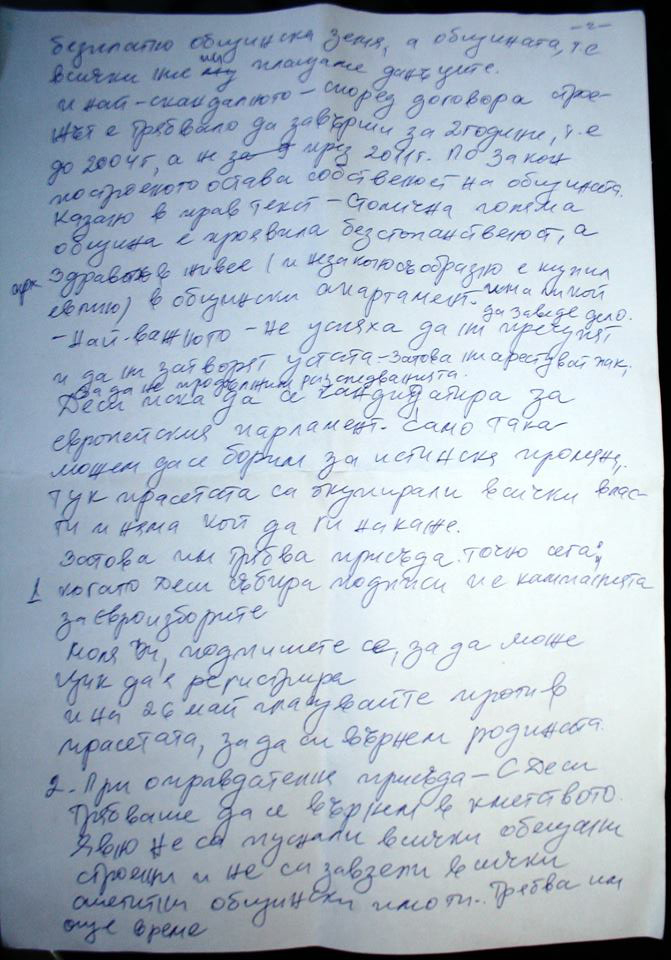 -2-
безплатно общинска земя, а общината, т.е
всички ние му плащаме данъците.
и най-скандалното - според договора строе-
жът е трябвало да завърши за 2 години, т.е
до 2004г, а не през 2011г. По закон
построеното остава собственост на общината.
Казано в прав текст - Столична голяма
община е проявила безстопанственост, а
арх Здравков живее (и незаконосъобразно е купил
евтино) в общински апартамент - и няма кой
да заведе дело.
- Най-важното - не успяха да ни пречупят
и да ни затворят устата - Затова ни арестуват пак,
За да не продължим разследванията.
Деси иска да се кандидатира за
европейския парламент. Само така
можем да се борим за истинска промяна,
тук прасетата са окупирали всички влас-
ти и няма кой да ги накаже.
Затова им трябва присъда точно сега,
1 когато Деси събира подписи и е кампанията
за Евроизборите
моля Ви, подпишете се, за да може
ЦИК да я регистрира
и на 26 май гласувайте против
прасетата, за да си върнем родината.
2. При оправдателна присъда - с Деси
трябваше да се върнем в кметството.
Явно не са пуснали всички обещани
строежи и не са завзели всички
апетитни общински имоти. Трябва им
още време